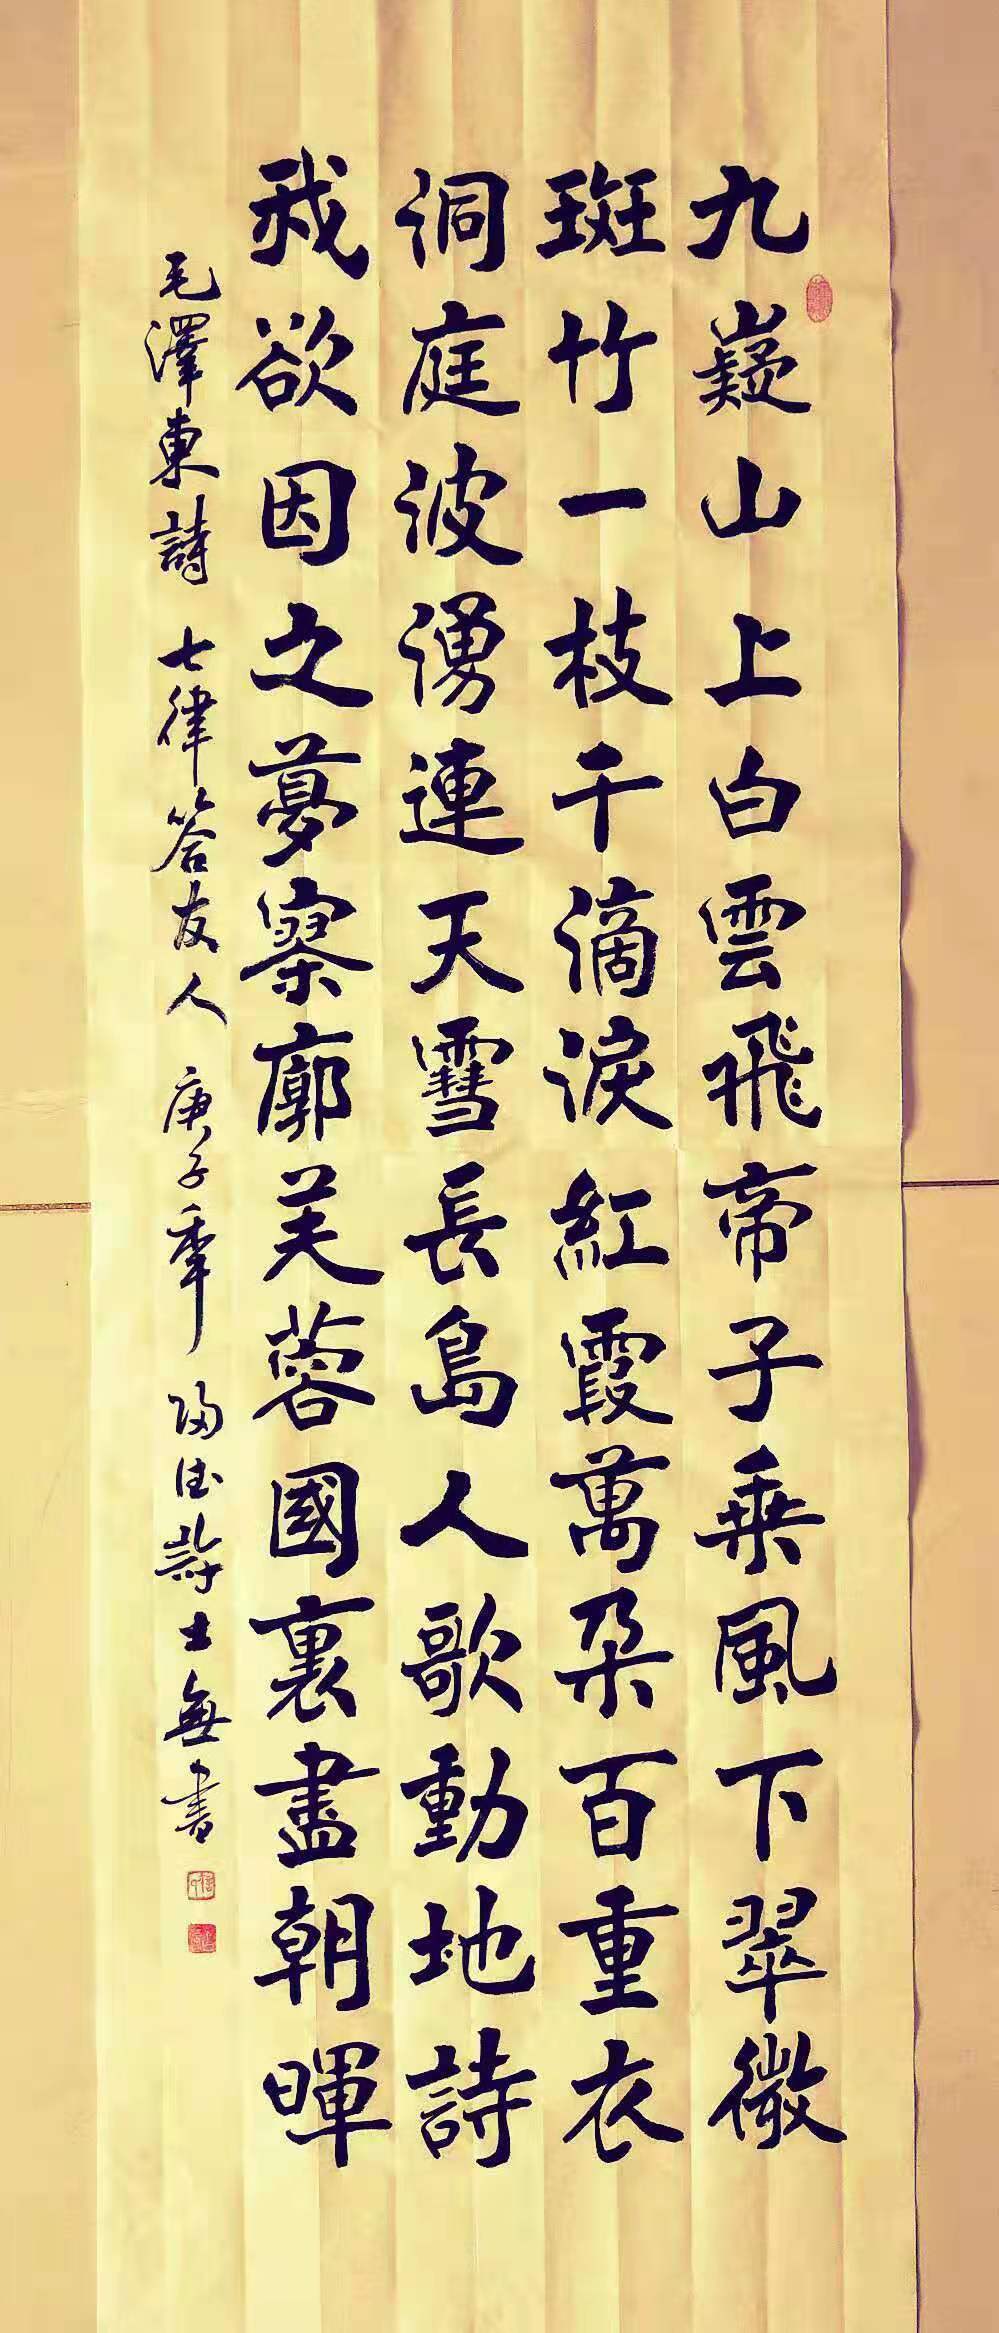 九嶷山上白雲飛帝子乘風下翠微
斑竹一枝千滴淚紅霞萬朵百重衣
洞庭波湧連天雪長島人歌動地詩
我欲因之夢寥廓芙蓉國裏盡朝暉
毛澤東詩 七律答友人 庚子年 士無書